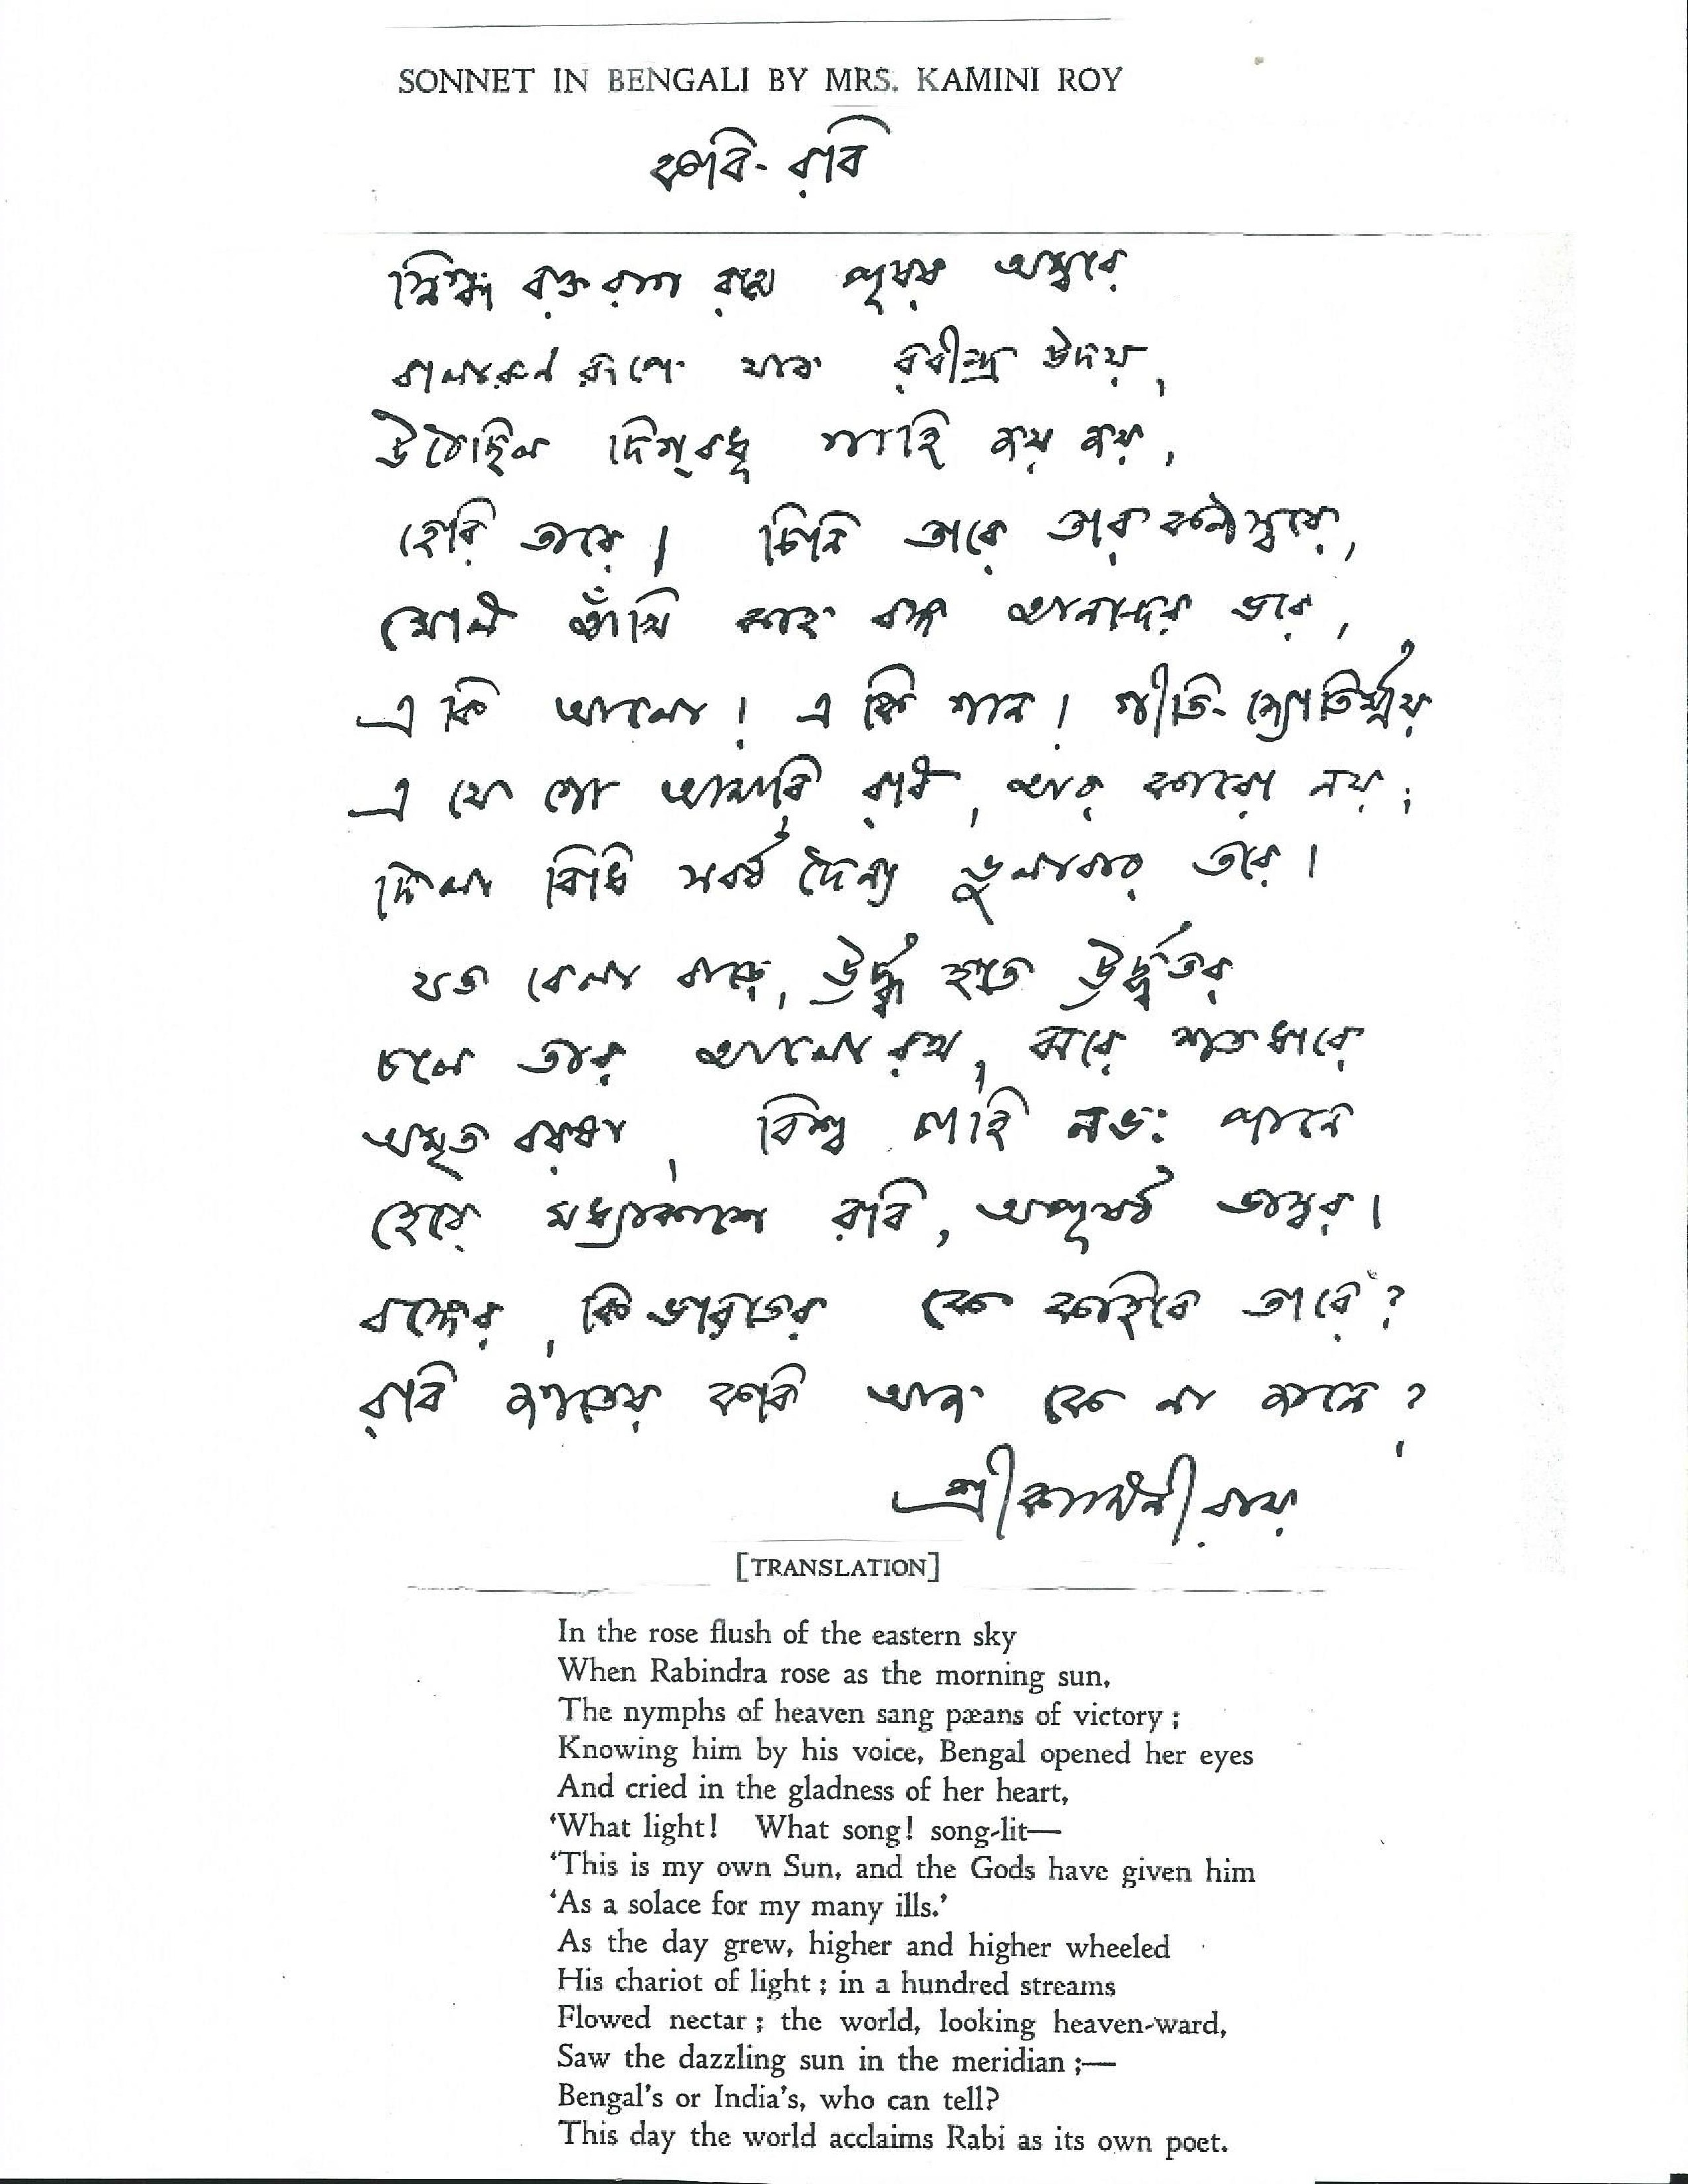 SONNET IN BENGALI BY MRS. KAMINI ROY
কবি-রবি
স্নিগ্ধ রক্তরাগ রথে পূরব অম্বরে
বালারুণ রূপে যবে রবীন্দ্র উদয়,
উঠেছিল দিগ্‌বধূ গাহি জয় জয়,
হেরি তারে। চিনি তারে তার কণ্ঠস্বরে,
মেলি আঁখি কহে বঙ্গ আনন্দের ভরে,
এ কি আলো! এ কি গান! গীতি-জ্যোতির্ম্ময়
এ যে গো আমারি রবি, আর কারো নয়;
দিলা বিধি সর্ব্ব দৈন্য ভুলাবার তরে।
যত বেলা বাড়ে, ঊর্দ্ধ হতে ঊর্দ্ধতর
চলে তার আলোরথ, ঝরে শতধারে
অমৃত বরষা, বিশ্ব চাহি নভঃ পানে
হেরে মধ্যাকাশে রবি, অপূর্ব্ব ভাস্বর।
বঙ্গের, কি ভারতের কে কহিবে তারে?
রবি জগতের কবি আজ কে না জানে?
শ্রীকামিনী রায়
[TRANSLATION]
In the rose flush of the eastern sky
When Rabindra rose as the morning sun,
The nymphs of heaven sang pæans of victory ;
Knowing him by his voice, Bengal opened her eyes
And cried in the gladness of her heart,
‘What light! What song! song-lit—
‘This is my own Sun, and the Gods have given him
‘As a solace for my many ills.’
As the day grew, higher and higher wheeled
His chariot of light ; in a hundred streams
Flowed nectar ; the world, looking heaven-ward,
Saw the dazzling sun in the meridian ;—
Bengal’s or India’s, who can tell?
This day the world acclaims Rabi as its own poet.